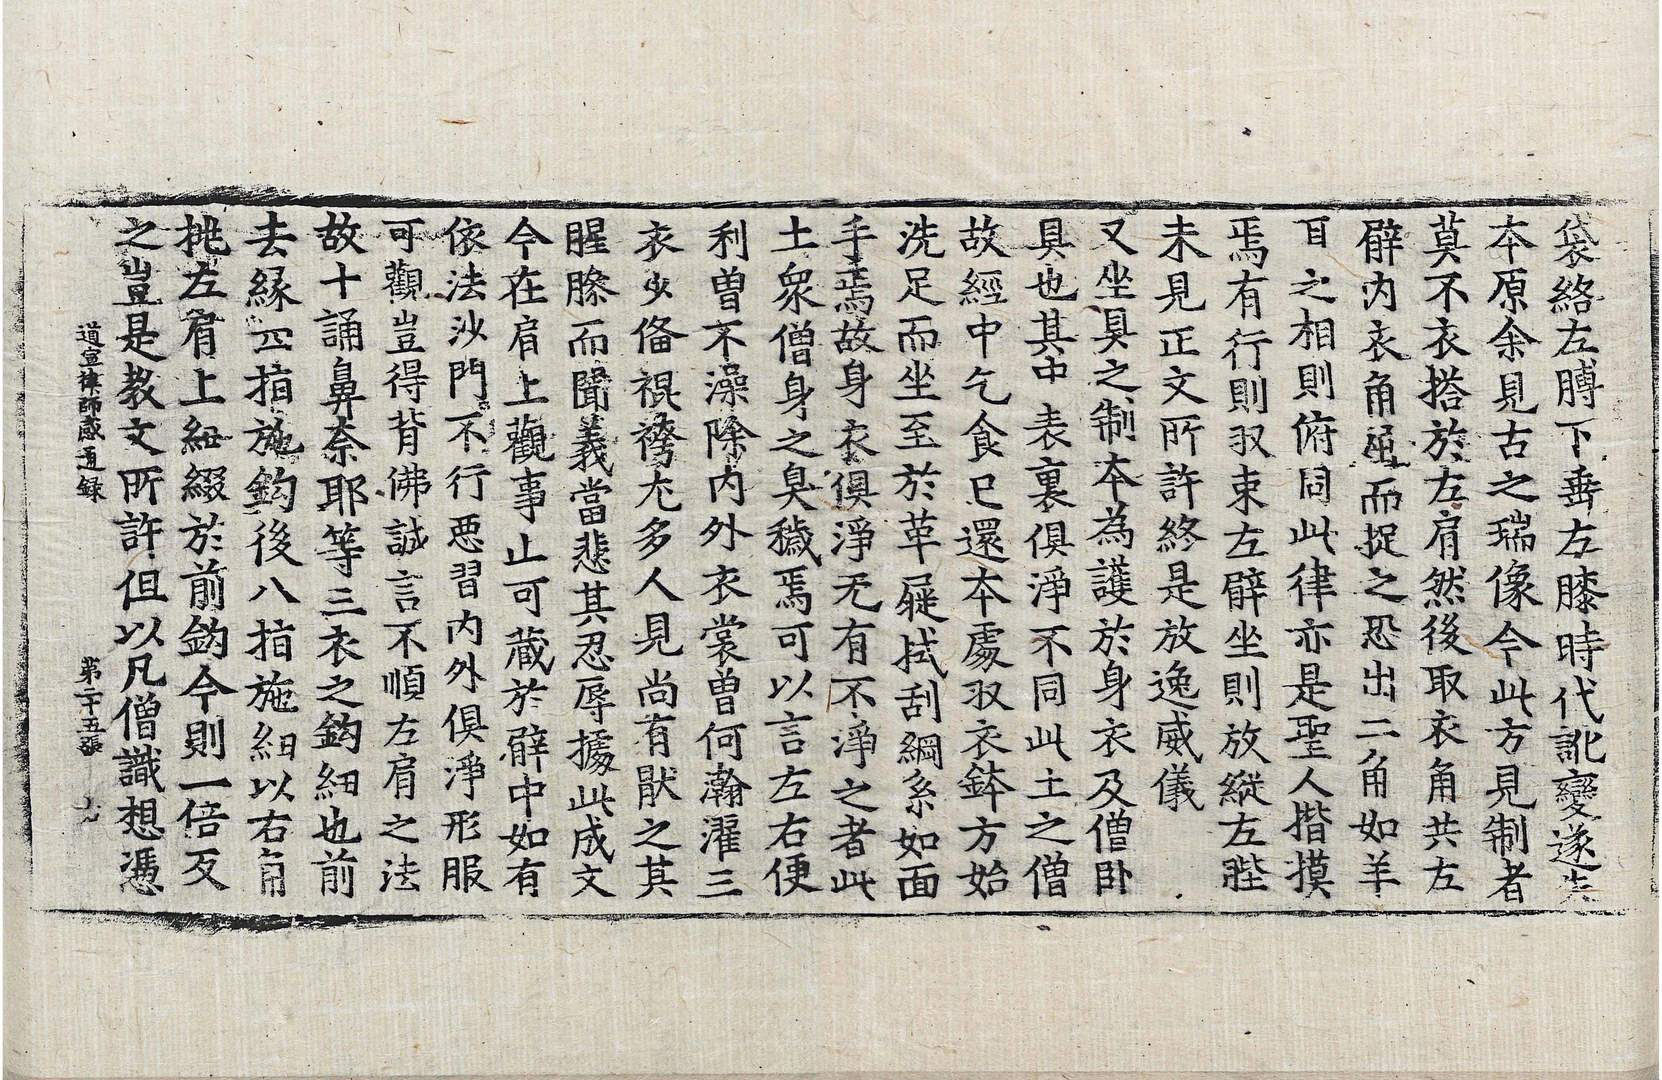 袋絡左膊下垂左膝時代訛變遂失
本原余見古之瑞像今此方見制者
莫不衣搭於左肩然後取衣角共左
臂内衣角𢪸而捉之恐出二角如羊
耳之相則俯同此律亦是聖人揩摸
焉有行則収束左臂坐則放縱左髀
未見正文所許終是放逸威儀
又坐具之制本為護於身衣及僧卧
具也其中表裏俱淨不同此土之僧
故經中乞食已還本處収衣鉢方始
洗足而坐至於革屣拭刮綱系如面
手焉故身衣俱淨无有不淨之者此
土衆僧身之臭穢焉可以言左右便
利曽不澡除内外衣裳曽何瀚濯三
衣少俻裩袴尤多人見尚有猒之其
腥臊而聞義當悲其忍辱據此成文
今在肩上觀事止可藏於臂中如有
依法沙門不行惡習内外俱淨形服
可觀豈得背佛誠言不順左肩之法
故十誦鼻奈耶等三衣之鈎紐也前
去緣四指施鈎後八指施紐以右角
挑左肩上紐綴於前鈎今則一倍反
之豈是教文所許但以凡僧識想憑
道宣律師感通録 第二十五張